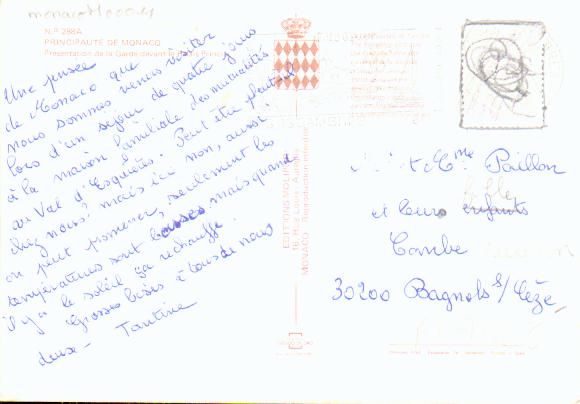 monaco1000.4
N.P 288A
PRINCIPAUTÉ DE MONACO
Présentation de la Garde devant le Palais Princier
Une pensée
de Monaco que
nous sommes venus visiter
lors d'un séjour de quatre jours
à la maison familiale des mutualités
au Val d'Esquières. Peut être pleut-il
chez nous? mais ici non, aussi
on peut promener, seulement les
températures sont basses mais quand
il y a le soleil ça réchauffe.
Grosses bises à tous de nous
deux - Tantine
EDITIONS MOLIPOR
MONACO - Reproduction Interdite
et Mme Paillon
et leurs enfants
Combe
30200 Bagnols s/ Cèze